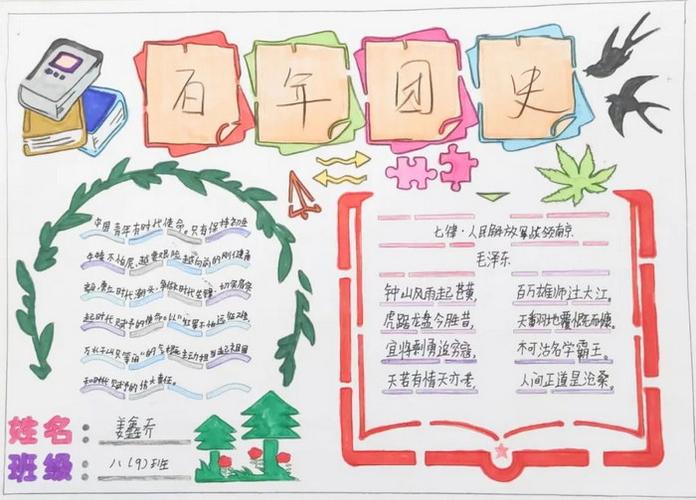 百年团史
中国青年有时代使命。只有保持初生
牛犊不怕虎、越是艰险越向前的刚健勇
毅,勇立时代潮头,争做时代先锋,切实肩负
起时代赋予的使命。以“红军不怕远征难
万水千山只等闲”的气概主动担当起祖国
和时代赋予的伟大责任。
七律·人民解放军占领南京
毛泽东
钟山风雨起苍黄, 百万雄师过大江。
虎踞龙盘今胜昔, 天翻地覆慨而慷。
宜将剩勇追穷寇, 不可沽名学霸王。
天若有情天亦老, 人间正道是沧桑。
姓名:姜鑫乔
班级:八(9)班